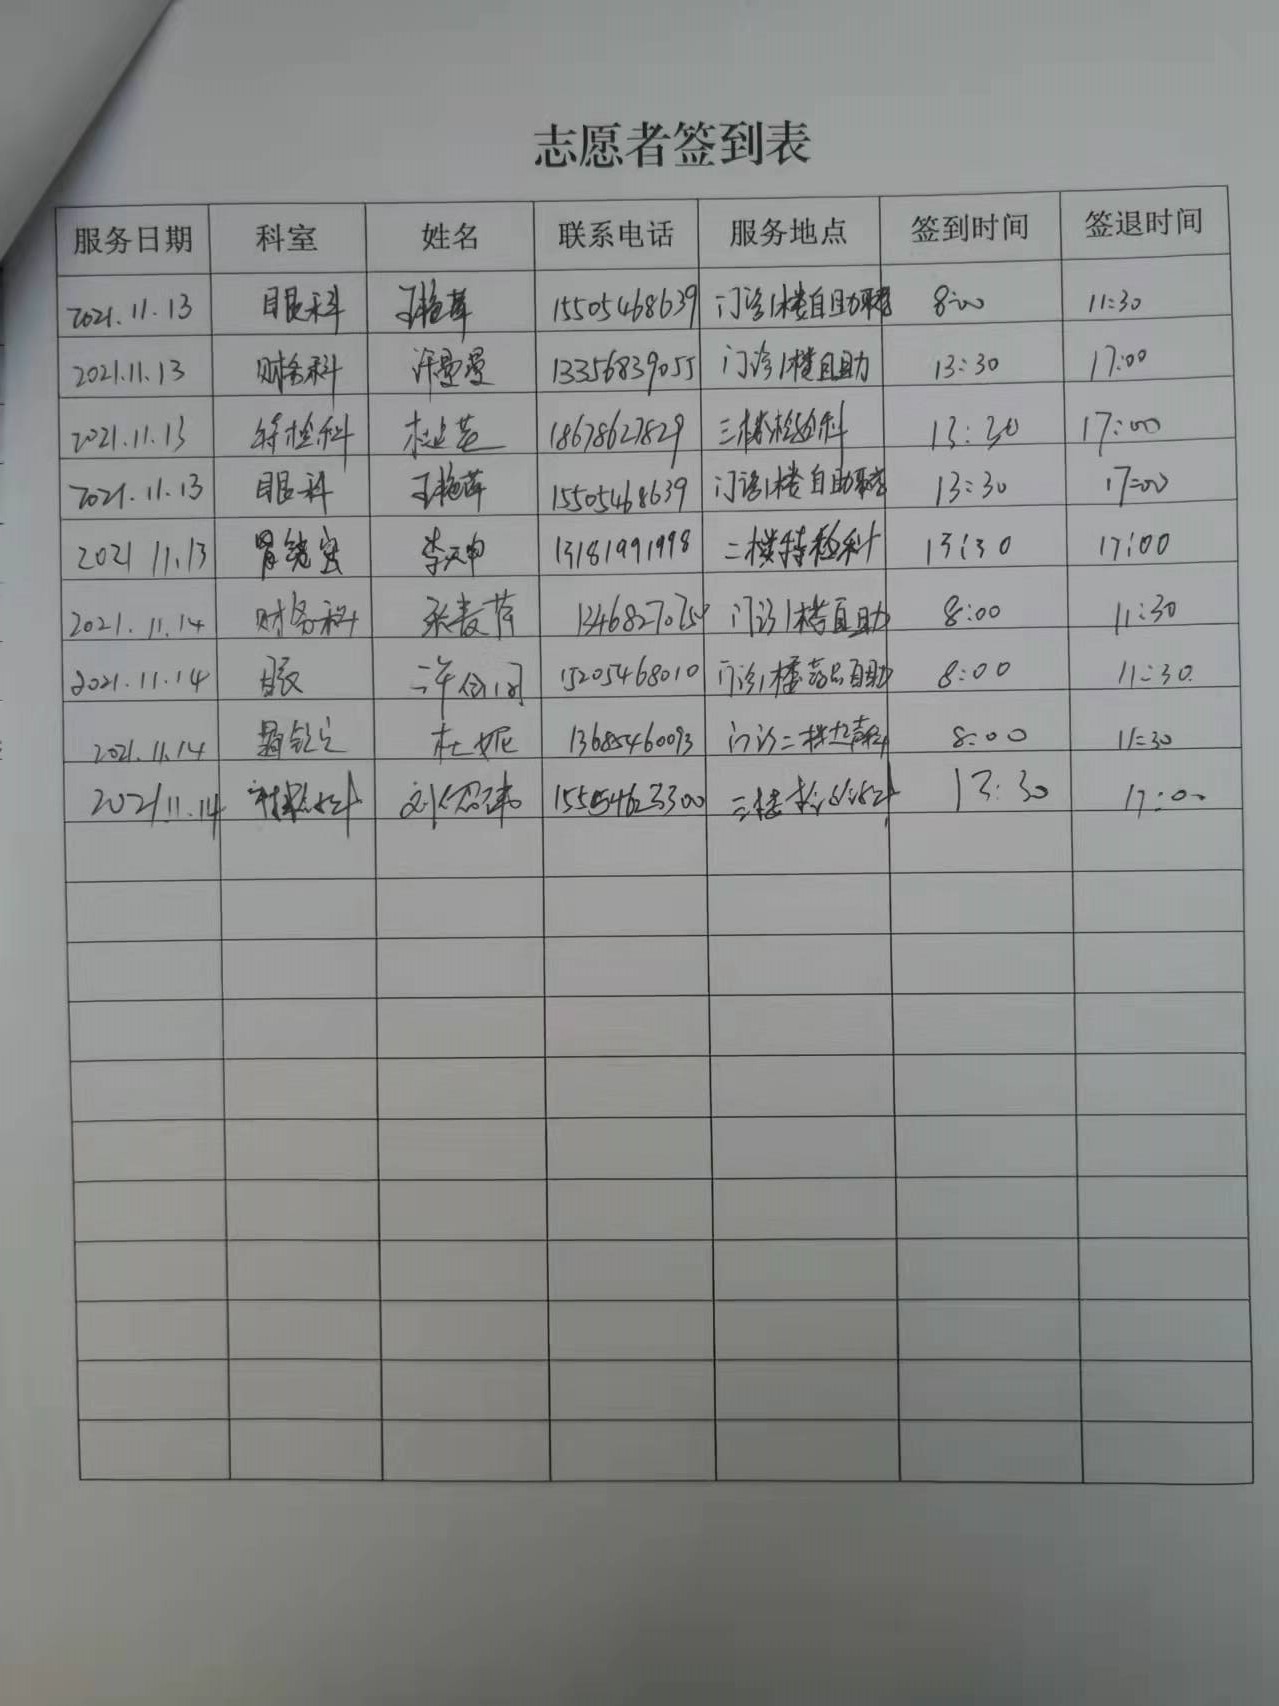 志愿者签到表
服务日期 科室 姓名 联系电话 服务地点 签到时间 签退时间
2021.11.13 眼科 15505468639 门诊1楼自助 8:00 11:30
2021.11.13 财务科 许曼曼 13356839055 门诊1楼自助 13:30 17:00
2021.11.13 特检科 18678627829 三楼检验科 13:30 17:00
2021.11.13 眼科 15505468639 门诊1楼自助 13:30 17:00
2021 11.13 胃镜室 李天申 13181991998 二楼特检科 13:30 17:00
2021.11.14 财务科 门诊1楼自助 8:00 11:30
2021.11.14 15205468010 门诊1楼 自助 8:00 11:30
2021.11.14 杜妮 13685460093 门诊二楼 8:00 11:30
2021 11.14 三楼 13:30 17:00